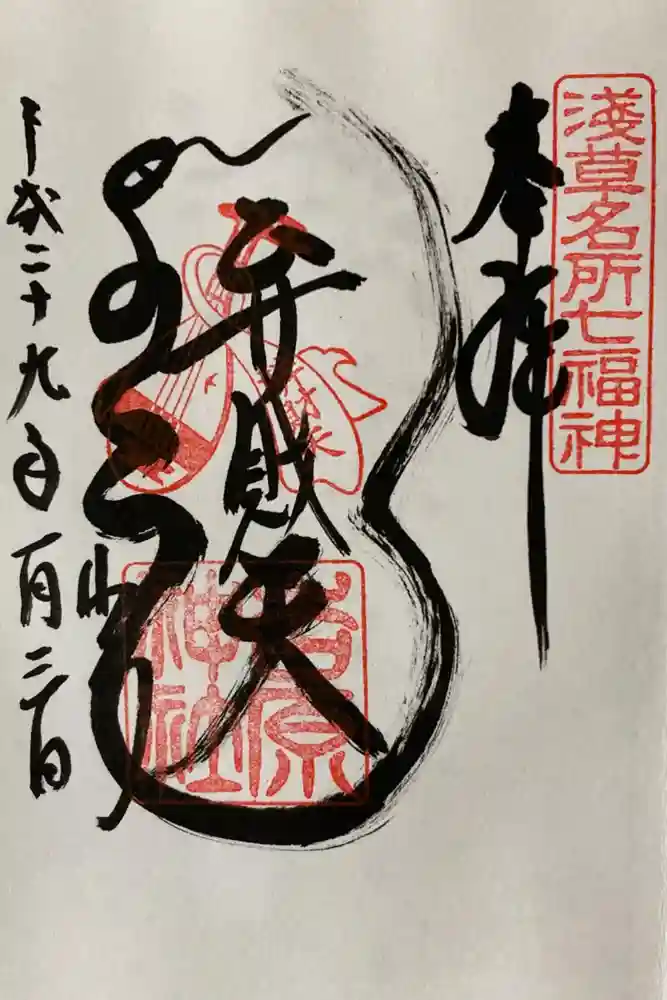 淺草名所七福神
奉拝
弁財天
吉原
神社
平成二十九年一月三日